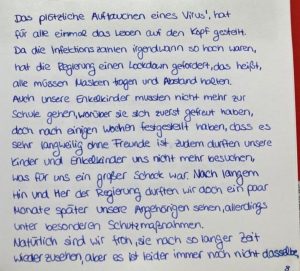 Das plötzliche Auftauchen eines Virus', hat
für alle einmal das Leben auf den Kopf gestellt.
Da die Infektionszahlen irgendwann so hoch waren,
hat die Regierung einen Lockdown gefordert, das heißt,
alle müssen Masken tragen und Abstand halten.
Auch unsere Enkelkinder mussten nicht mehr zur
Schule gehen, worüber sie sich zuerst gefreut haben,
doch nach einigen Wochen festgestellt haben, dass es
sehr langweilig ohne Freunde ist. Zudem durften unsere
Kinder und Enkelkinder uns nicht mehr besuchen,
was für uns ein großer Schock war. Nach langem
Hin und Her der Regierung durften wir doch ein paar
Monate später unsere Angehörigen sehen, allerdings
unter besonderen Schutzmaßnahmen.
Natürlich sind wir froh, sie nach so langer Zeit
wiederzusehen, aber es ist leider immer noch nicht dasselbe,